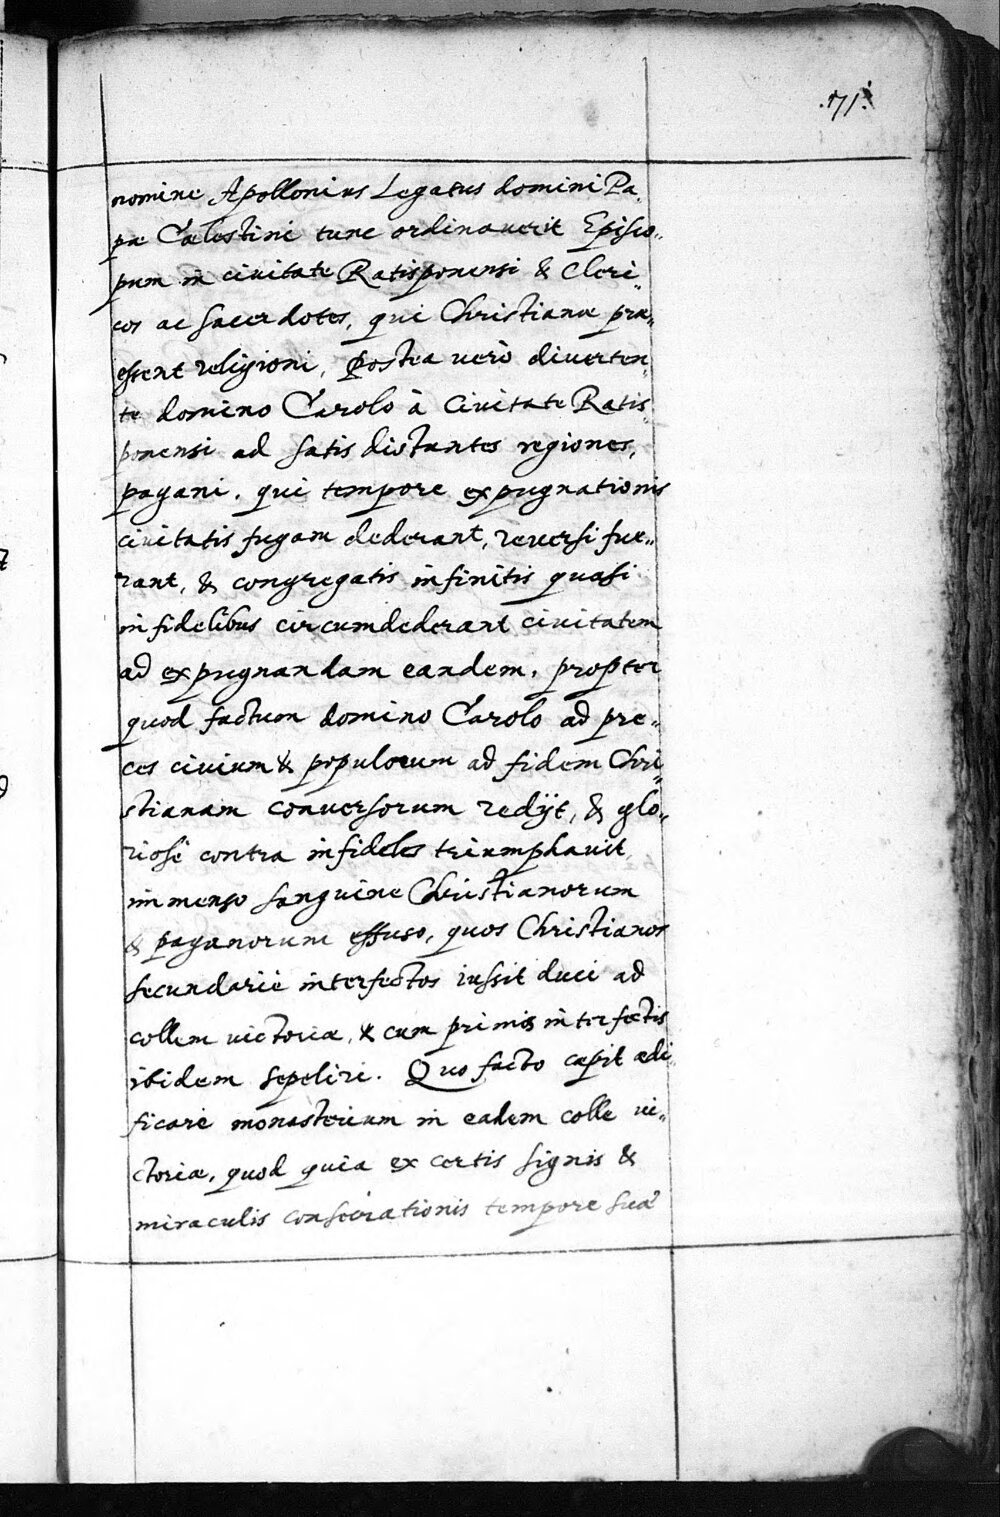 .71.
nomine Apollonius Legatus domini Pa„
pæ Cœlestini tunc ordinauerit Episco„
pum in ciuitate Ratisponensi & Cleri„
cos ac sacerdotes, qui Christianæ præ„
essent religioni, Postea verò diverten„
te domino Carolo à Ciuitate Ratis„
ponensi ad satis distantes regiones,
pagani, qui tempore expugnationis
ciuitatis fugam dederant, reversi fue„
rant, & congregatis infinitis quasi
infidelibus circumdederant ciuitatem
ad expugnandam eandem, propter
quod factum domino Carolo ad pre„
ces ciuium & populorum ad fidem Chri„
stianam conversorum redijt, & glo„
riosè contra infideles triumphauit
immenso sanguine Christianorum
& paganorum effuso, quos Christianos
secundariè interfectos iussit duci ad
collem uictoriæ, & cum primis interfectis
ibidem sepeliri. Quo facto cæpit ædi„
ficare monasterium in eadem colle ui„
ctoriæ, quod quia ex certis signis &
miraculis consecrationis tempore suæ